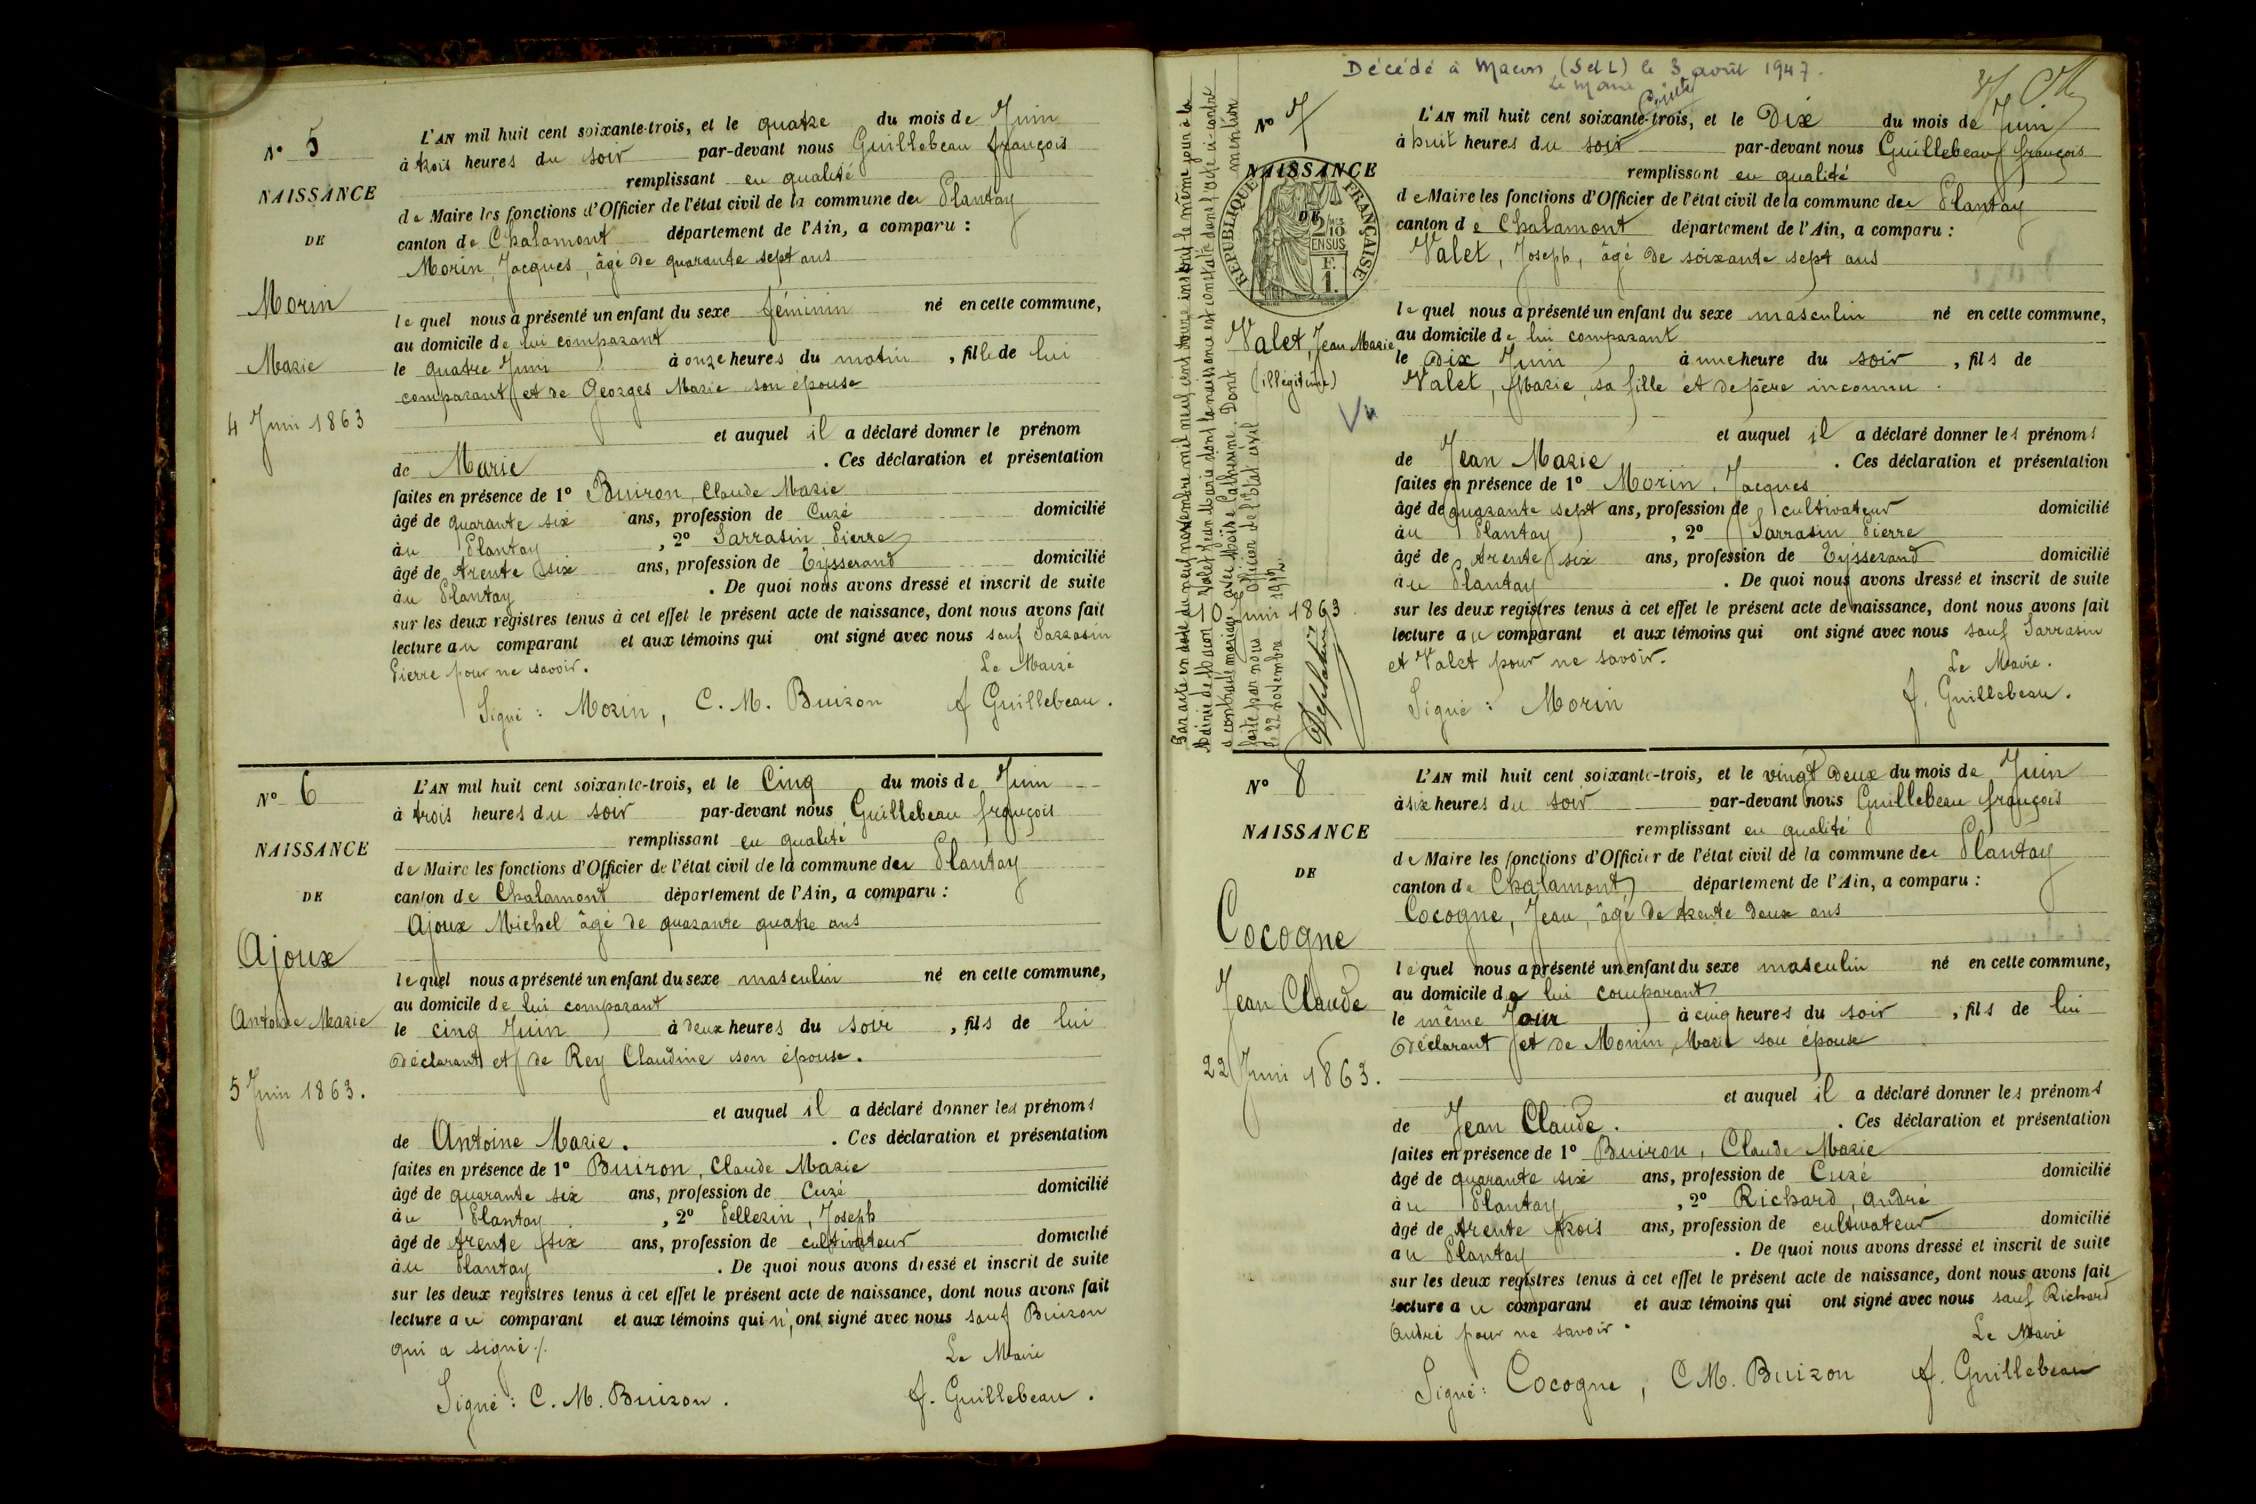 N° 5
NAISSANCE
DE
Morin
Marie
4 Juin 1863
L'AN mil huit cent soixante-trois, et le quatre du mois de Juin
à trois heures du soir par-devant nous Guillebeau françois
remplissant en qualité
de Maire les fonctions d'Officier de l'état civil de la commune deu Plantay
canton de Chalamont département de l'Ain, a comparu :
Morin, Jacques, âgé de quarante sept ans
lequel nous a présenté un enfant du sexe féminin né en cette commune,
au domicile de lui comparant
le quatre Juin à onze heures du matin, fille de lui
comparant et de Georges Marie son épouse
et auquel il a déclaré donner le prénom
de Marie . Ces déclaration et présentation
faites en présence de 1° Buiron, Claude Marie
âgé de quarante six ans, profession de Curé domicilié
au Plantay, 2° Sarrasin Pierre
âgé de trente six ans, profession de Tysserand domicilié
au Plantay . De quoi nous avons dressé et inscrit de suite
sur les deux registres tenus à cet effet le présent acte de naissance, dont nous avons fait
lecture au comparant et aux témoins qui ont signé avec nous sauf Sarrasin
Pierre pour ne savoir.
Le Maire
Signé : Morin, C. M. Buiron f Guillebeau.
N° 6
NAISSANCE
DE
Ajoux
Antoine Marie
5 Juin 1863.
L'AN mil huit cent soixante-trois, et le Cinq du mois de Juin
à trois heures du soir par-devant nous Guillebeau françois
remplissant en qualité
de Maire les fonctions d'Officier de l'état civil de la commune deu Plantay
canton de Chalamont département de l'Ain, a comparu :
Ajoux Michel âgé de quarante quatre ans
lequel nous a présenté un enfant du sexe masculin né en cette commune,
au domicile de lui comparant
le cinq Juin à deux heures du soir, fils de lui
déclarant et de Rey Claudine son épouse.
et auquel il a déclaré donner les prénoms
de Antoine Marie. . Ces déclaration et présentation
faites en présence de 1° Buiron, Claude Marie
âgé de quarante six ans, profession de Curé domicilié
au Plantay, 2° Pellerin, Joseph
âgé de trente six ans, profession de cultivateur domicilié
au Plantay . De quoi nous avons dressé et inscrit de suite
sur les deux registres tenus à cet effet le présent acte de naissance, dont nous avons fait
lecture au comparant et aux témoins qui n'ont signé avec nous sauf Buiron
qui a signé./.
Le Maire
Signé : C. M. Buiron. f. Guillebeau.
Décédé à Macon (S et L) le 3 août 1947.
Le Maire
N° 7
NAISSANCE
DE
REPUBLIQUE FRANÇAISE
2/10
EN SUS
F.
1.
Valet, Jean Marie
(illégitime)
Vu
10 Juin 1863
Par acte en date du neuf novembre mil neuf cent douze inscrit le même jour à la
Mairie de Macon Valet Jean Marie dont la naissance est constatée dans l'acte ci-contre
a contracté mariage avec Moire Catherine. Dont mention
faite par nous Officier de l'Etat civil
le 22 novembre 1912.
L'AN mil huit cent soixante-trois, et le Dix du mois de Juin
à huit heures du soir par-devant nous Guillebeau françois
remplissant en qualité
de Maire les fonctions d'Officier de l'état civil de la commune deu Plantay
canton de Chalamont département de l'Ain, a comparu :
Valet, Joseph, âgé de soixante sept ans
lequel nous a présenté un enfant du sexe masculin né en cette commune,
au domicile de lui comparant
le dix Juin à une heure du soir, fils de
Valet, Marie, sa fille et de père inconnu.
et auquel il a déclaré donner les prénoms
de Jean Marie . Ces déclaration et présentation
faites en présence de 1° Morin, Jacques
âgé de quarante sept ans, profession de cultivateur domicilié
au Plantay, 2° Sarrasin Pierre
âgé de trente six ans, profession de Tysserand domicilié
au Plantay . De quoi nous avons dressé et inscrit de suite
sur les deux registres tenus à cet effet le présent acte de naissance, dont nous avons fait
lecture au comparant et aux témoins qui ont signé avec nous sauf Sarrasin
et Valet pour ne savoir.
Le Maire.
Signé : Morin f. Guillebeau.
N° 8
NAISSANCE
DE
Cocogne
Jean Claude
22 Juin 1863.
L'AN mil huit cent soixante-trois, et le vingt deux du mois de Juin
à six heures du soir par-devant nous Guillebeau françois
remplissant en qualité
de Maire les fonctions d'Officier de l'état civil de la commune deu Plantay
canton de Chalamont département de l'Ain, a comparu :
Cocogne, Jean, âgé de trente deux ans
lequel nous a présenté un enfant du sexe masculin né en cette commune,
au domicile de lui comparant
le même Jour à cinq heures du soir, fils de lui
déclarant et de Monin, Marie son épouse
et auquel il a déclaré donner les prénoms
de Jean Claude. . Ces déclaration et présentation
faites en présence de 1° Buiron, Claude Marie
âgé de quarante six ans, profession de Curé domicilié
au Plantay, 2° Richard, André
âgé de trente trois ans, profession de cultivateur domicilié
au Plantay . De quoi nous avons dressé et inscrit de suite
sur les deux registres tenus à cet effet le présent acte de naissance, dont nous avons fait
lecture au comparant et aux témoins qui ont signé avec nous sauf Richard
André pour ne savoir.
Le Maire
Signé : Cocogne, C M. Buiron f. Guillebeau